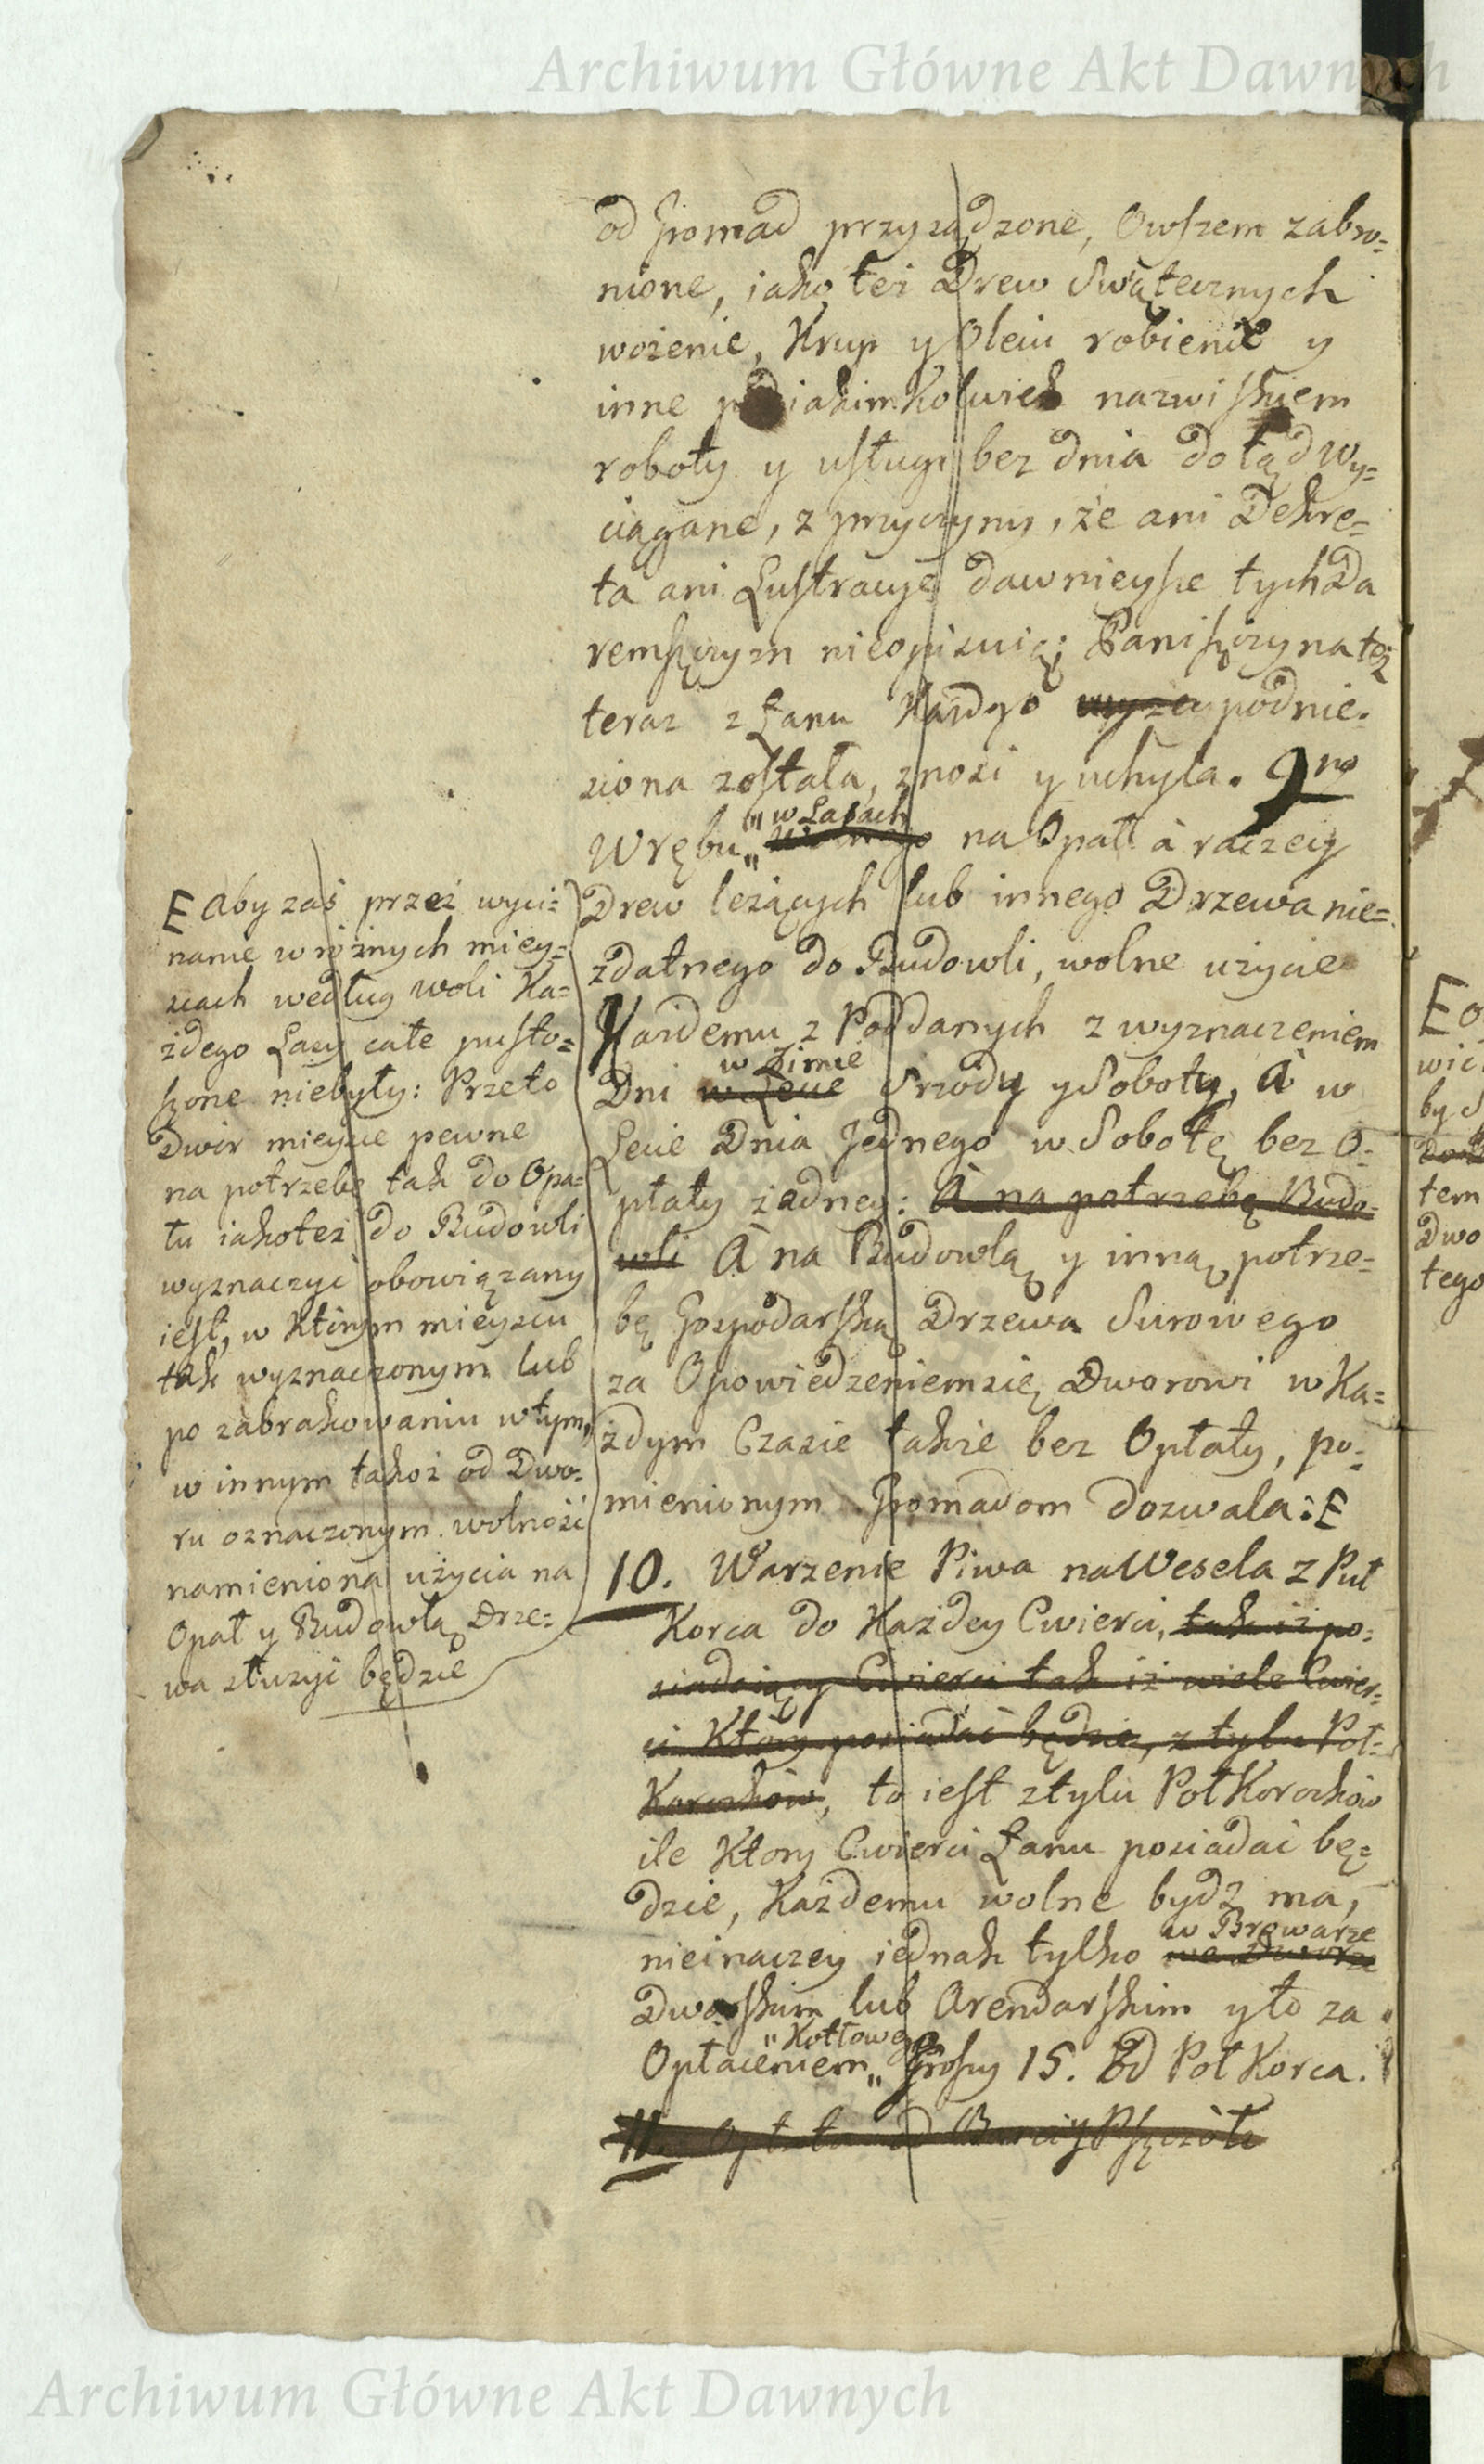 Archiwum Główne Akt Dawnych
od Gromad przysądzone, Owszem zabro=
nione, iako też Drew Swątecznych
wożenie, Krup y Oleiu robienie y
inne pod iakimkolwiek nazwiskiem
roboty y usługi bez dnia dotąd wy=
ciągane, z przyczyny, że ani Dekre=
ta ani Lustracye dawnieysze tych Da
remszczyzn nieopisuią; Panszczyzna też
teraz z Łanu Każdgo wyżey podnie=
siona została, znosi y uchyla. 9no
"w Lasach
Wrębu" na Opał à raczey
Drew leżących lub innego Drzewa nie=
zdatnego do Budowli, wolne użycie
Każdemu z Poddanych z wyznaczeniem
w Zimie
Dni w Lecie Srzody y Soboty, à w
Lecie Dnia Jednego w Sobotę bez O=
płaty żadney: A na potrzebę Budo=
wli A na Budowlą y inną potrze=
bę Gospodarską Drzewa Surowego
za Opowiedzeniem się Dworowi w Ka=
żdym Czasie także bez Opłaty, po=
mienionym Gromadom dozwala: E
E Aby zaś przez wyci=
nanie w różnych miey=
scach według woli Ka=
żdego Lasy całe pusto=
szone niebyły: Przeto
Dwór mieysce pewne
na potrzebę tak do Opa=
łu iakoteż do Budowli
wyznaczyć obowiązany
iest, w którym mieyscu
tak wyznaczonym lub
po zabrakowaniu w tym,
w innym takoż od Dwo=
ru oznaczonym. wolność
namieniona użycia na
Opał y Budowlą Drze=
wa służyć będzie
10. Warzenie Piwa na Wesela z Puł
Korca do Każdey Cwierci, tak iż po=
siadaiący Cwierci tak iż wiele Cwier=
ci Który posiadać będzie, z tylu Poł=
Korczków, to iest z tylu Poł Korczków
ile Ktory Cwierci Łanu posiadać bę=
dzie, Każdemu wolne bydź ma,
w Browarze
nieinaczey iednak tylko we Dworze
Dworskim lub Arendarskim y to za
"Kotłowego
Opłaceniem" Groszy 15. Od Poł Korca.
11. Opłata od Barci y Pszczół
E
wić
by
tem
Dwo
tego
Archiwum Główne Akt Dawnych